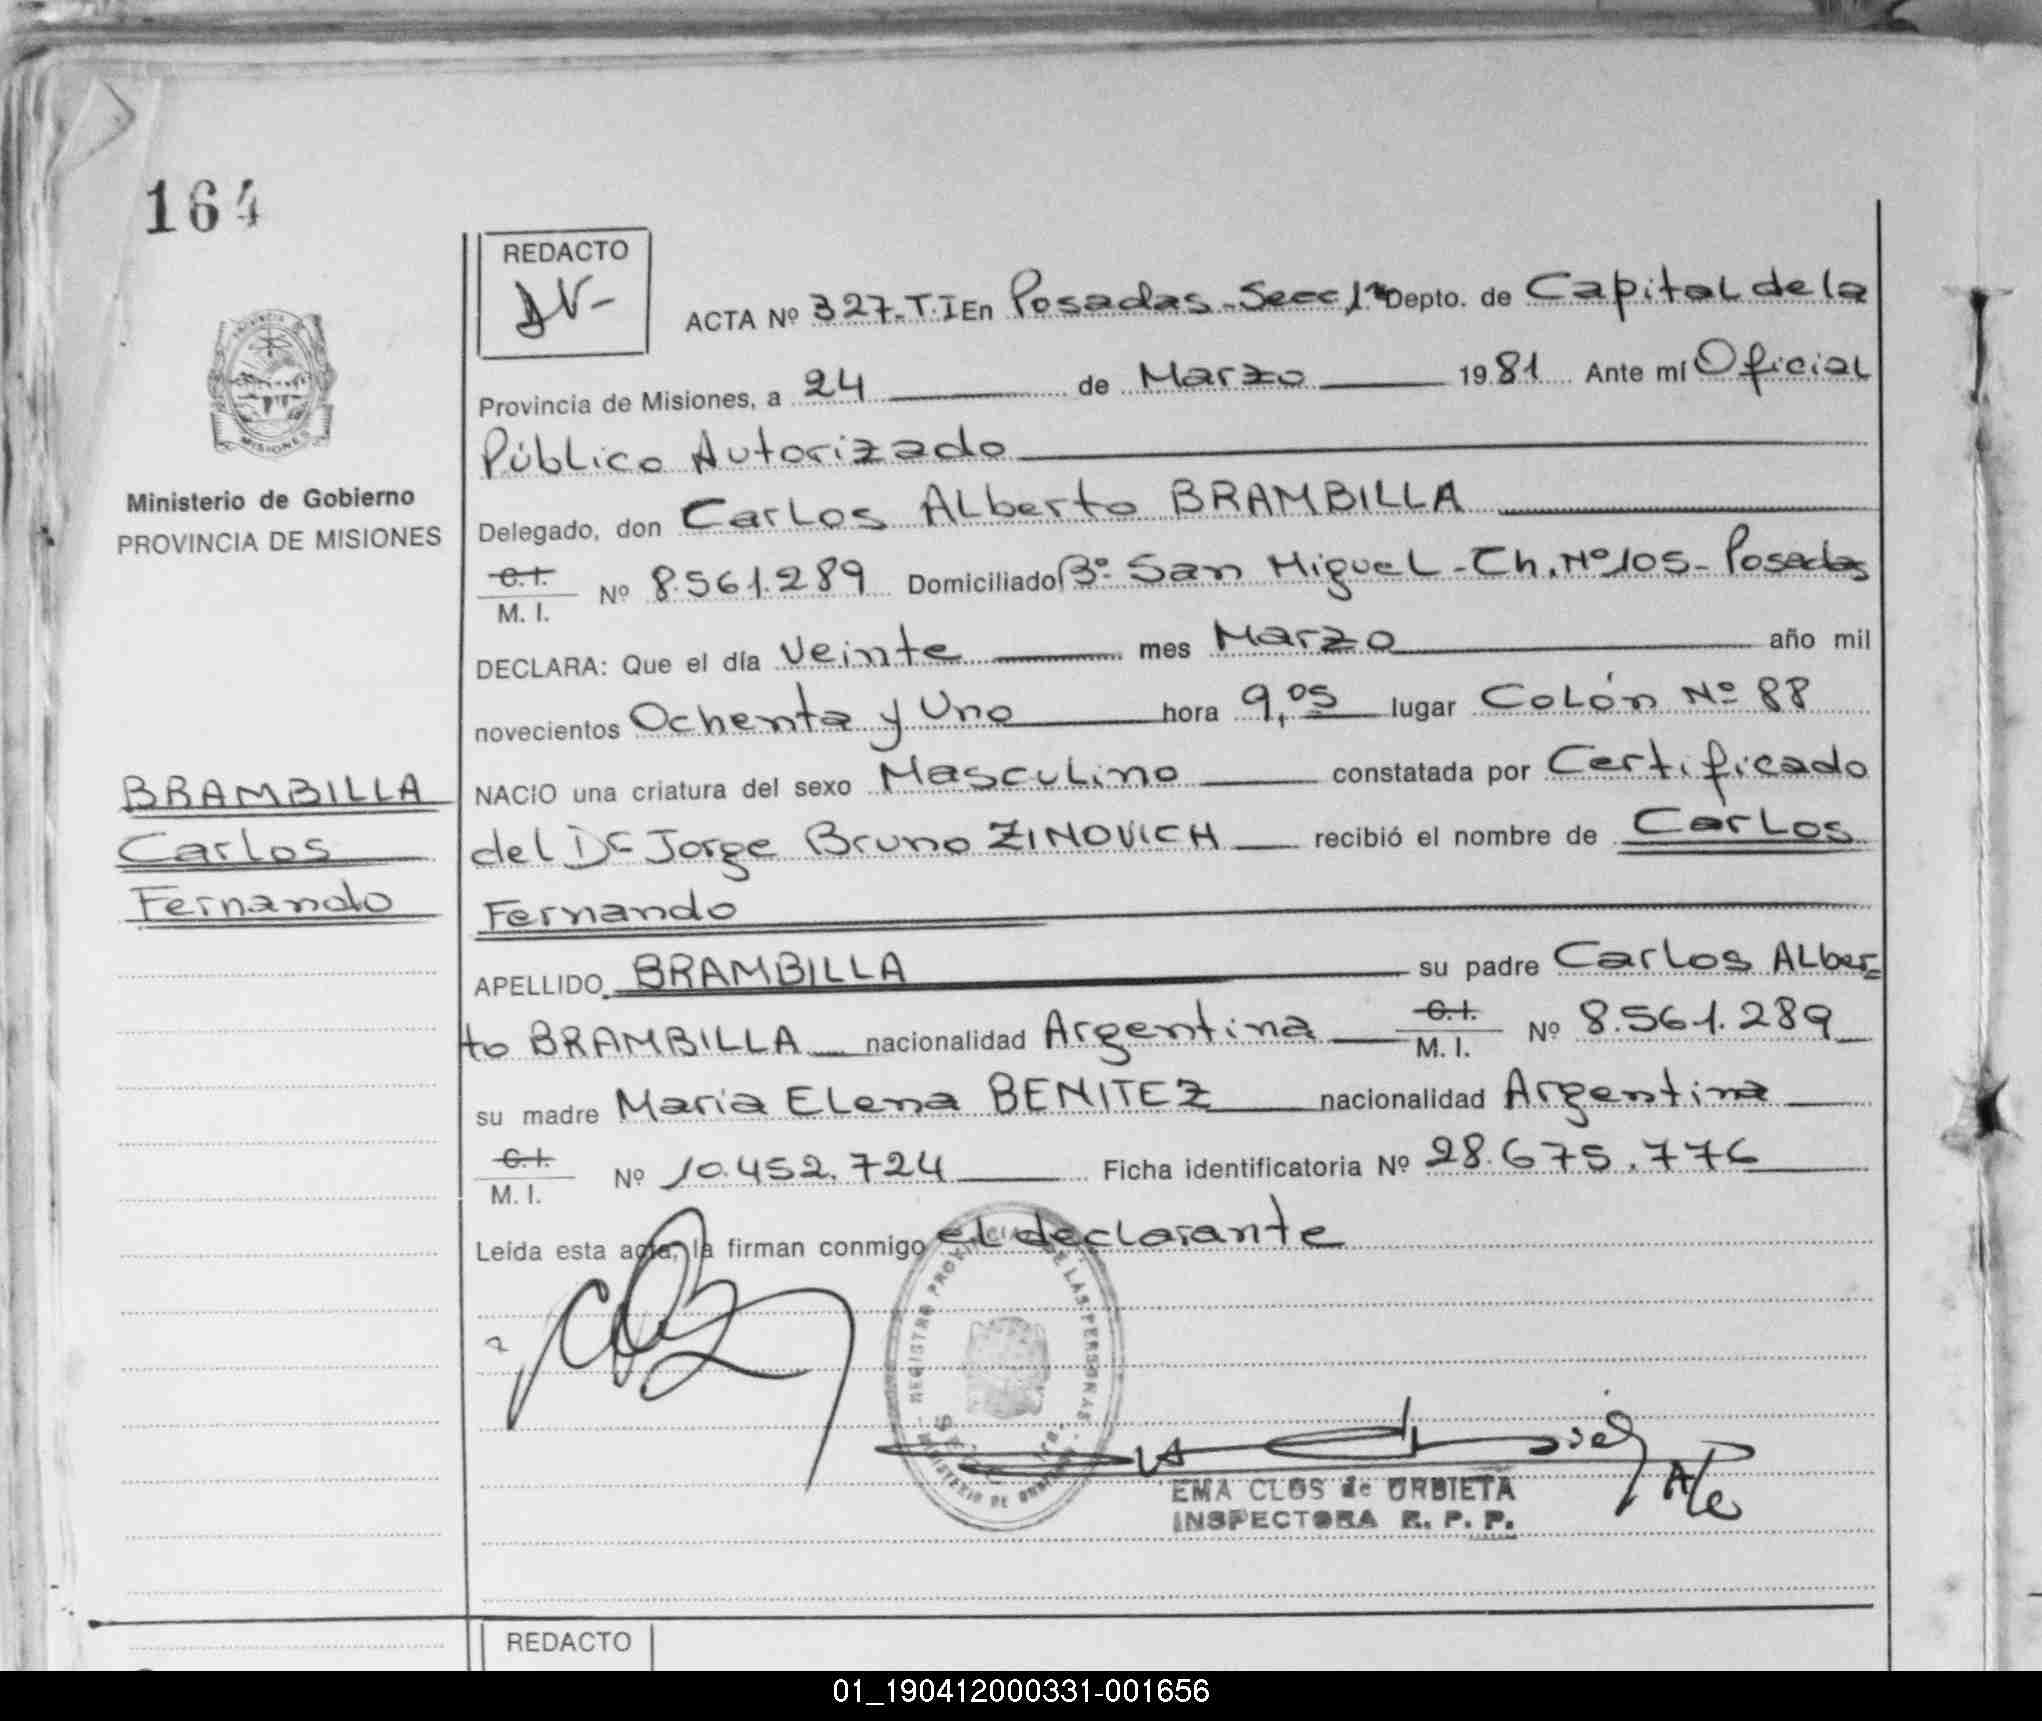 164
REDACTO
ACTA Nº 327-T.I En Posadas-Secc, 1ª Depto. de Capital de la
Provincia de Misiones, a 24 de Marzo 1981 Ante mí Oficial
Público Autorizado
Ministerio de Gobierno
PROVINCIA DE MISIONES
Delegado, don Carlos Alberto BRAMBILLA
C.I. M. I. Nº 8.561.289 Domiciliado Bº San Miguel-Ch. Nº 105-Posadas
DECLARA: Que el día Veinte mes Marzo año mil
novecientos Ochenta y Uno hora 9,05 lugar Colón Nº 88
BRAMBILLA
Carlos
Fernando
NACIO una criatura del sexo Masculino constatada por Certificado
del Dr Jorge Bruno ZINOVICH recibió el nombre de Carlos
Fernando
APELLIDO BRAMBILLA su padre Carlos Alber=
to BRAMBILLA nacionalidad Argentina C.I. M. I. Nº 8.561.289
su madre Maria Elena BENITEZ nacionalidad Argentina
C.I. M. I. Nº 10.452.724 Ficha identificatoria Nº 28.675.776
Leída esta acta, la firman conmigo el declarante
REGISTRO PROVINCIAL DE LAS PERSONAS
MINISTERIO DE GOBIERNO
EMA CLOS de URBIETA
INSPECTORA R. P. P.
REDACTO
01_190412000331-001656